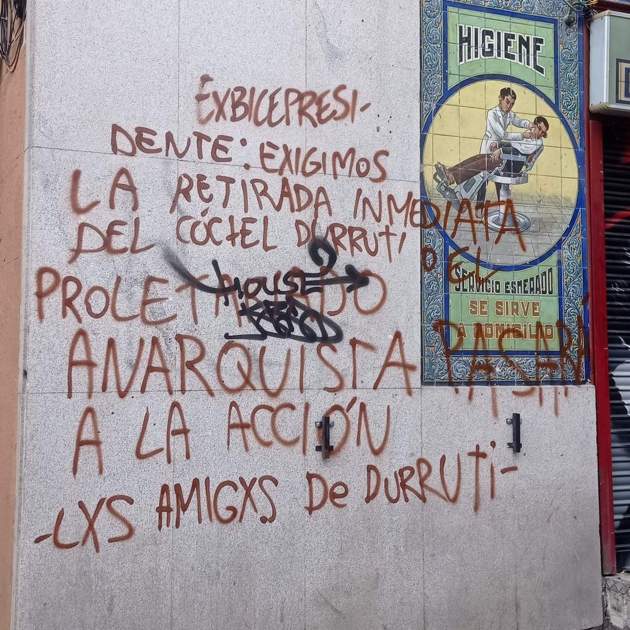 HIGIENE
EXBICEPRESI-
DENTE: EXIGIMOS
LA RETIRADA INMEDIATA
DEL CÓCTEL DURRUTI O EL
PROLETARIADO
HOUSE
ANARQUISTA PASARÁ
A LA ACCIÓN
-LXS AMIGXS De DURRUTI-
SERVICIO ESMERADO
SE SIRVE
A DOMICILIO